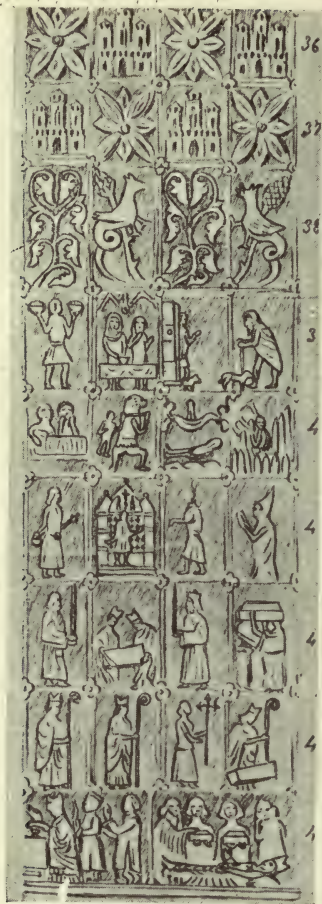 36
37
38
3
4
4
4
4
4